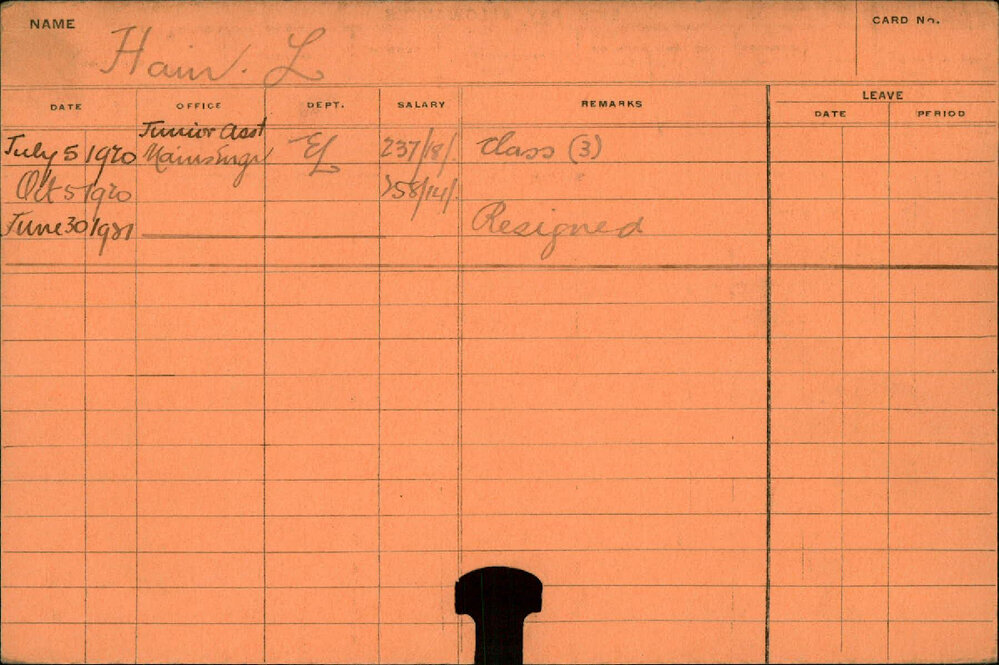 NAME Hain. L CARD No.
DATE OFFICE DEPT. SALARY REMARKS LEAVE
DATE PERIOD
Junior Asst
July 5 1920 Mains Engr EL 237/8/. Class (3)
Oct 5 1920 258/14/.
June 30 1921 Resigned